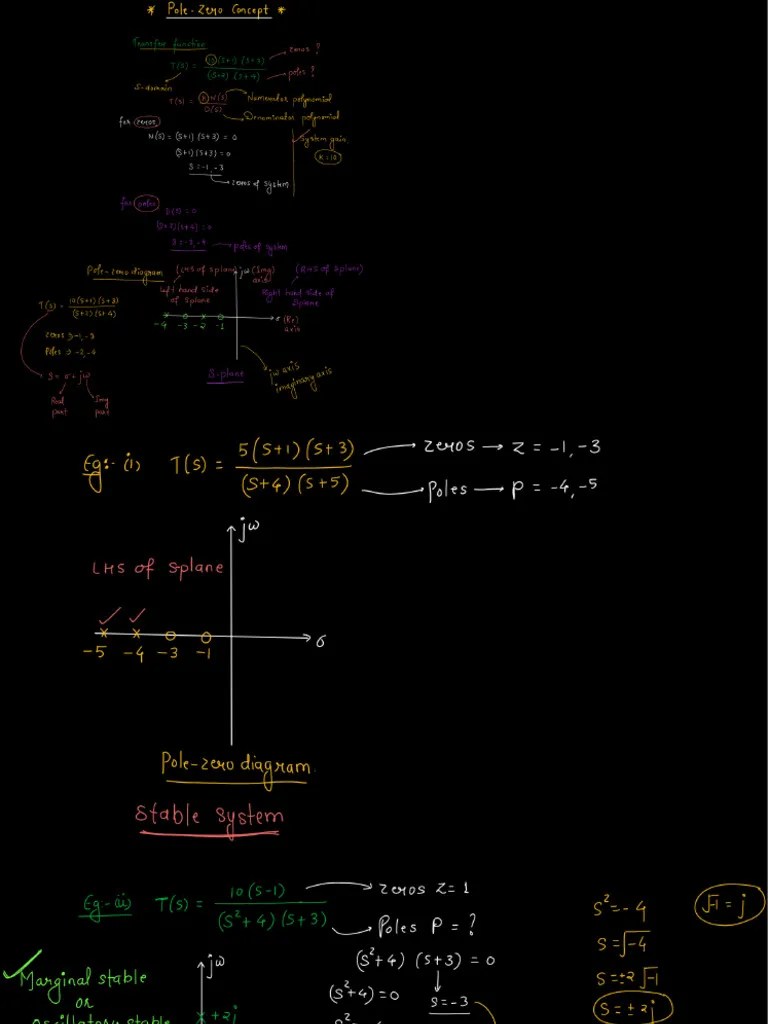 * Pole-Zero Concept *
Transfer function
T(s) = 10(s+1)(s+3) / (s+2)(s+4)
zeros ?
poles ?
S-domain
T(s) = K N(s) / D(s)
Numerator polynomial
Denominator polynomial
for zeros
N(s) = (s+1)(s+3) = 0
(s+1)(s+3) = 0
s = -1, -3
zeros of system
System gain
K = 10
for poles
D(s) = 0
(s+2)(s+4) = 0
s = -2, -4
poles of system
Pole-zero diagram
(LHS of splane)
jω (Img) axis
(RHS of splane)
Left hand side of splane
Right hand side of splane
T(s) = 10(s+1)(s+3) / (s+2)(s+4)
-4 -3 -2 -1
σ (Re) axis
zeros → -1, -3
Poles → -2, -4
S = σ + jω
Real part
Img part
S-plane
jω axis
imaginary axis
Eg:- (i) T(s) = 5(s+1)(s+3) / (s+4)(s+5)
zeros → z = -1, -3
poles → P = -4, -5
jω
LHS of splane
σ
-5 -4 -3 -1
Pole-zero diagram.
Stable system
Eg-(ii) T(s) = 10(s-1) / (s²+4)(s+3)
zeros z = 1
Poles P = ?
(s²+4)(s+3) = 0
(s²+4) = 0
s = -3
s² = -4
s = √-4
s = ±2√-1
s = ±2j
√-1 = j
Marginal stable
or
oscillatory stable
jω
+2j
s² = -4